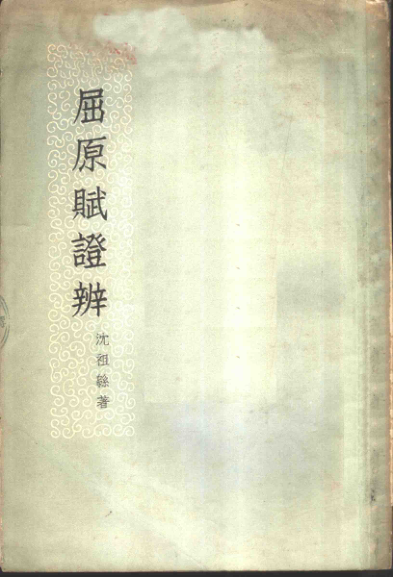 屈原賦證辨
沈祖緜著